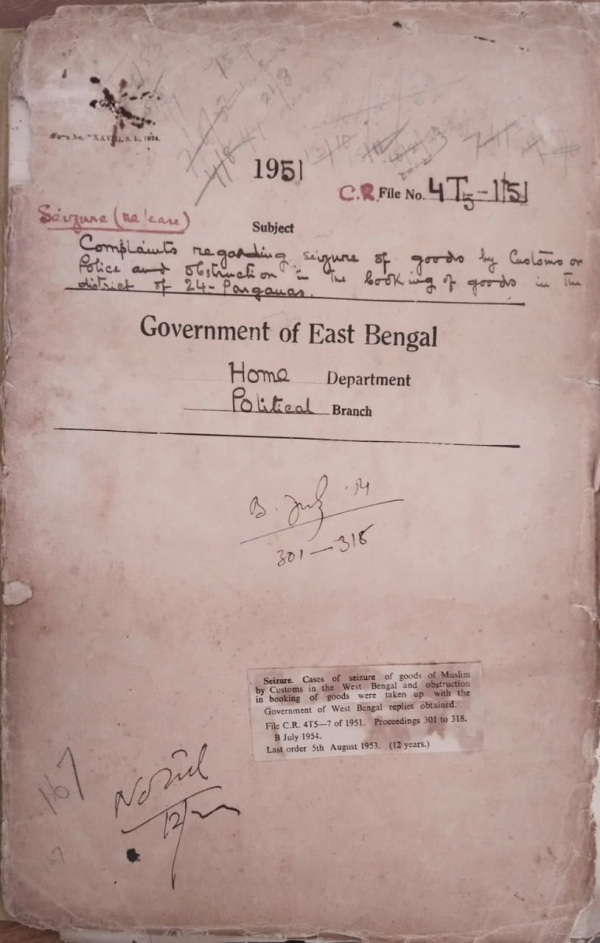 1951
C.R. File No. 4T5-1/51
Seizure (release)
Subject
Complaints regarding seizure of goods by Customs or
Police and obstruction in the booking of goods in the
district of 24-Parganas.
Government of East Bengal
Home Department
Political Branch
B. July
301-318
Seizure. Cases of seizure of goods of Muslim
by Customs in the West Bengal and obstruction
in booking of goods were taken up with the
Government of West Bengal replies obtained.
File C.R. 4T5—7 of 1951. Proceedings 301 to 318.
B July 1954.
Last order 5th August 1953. (12 years.)
167